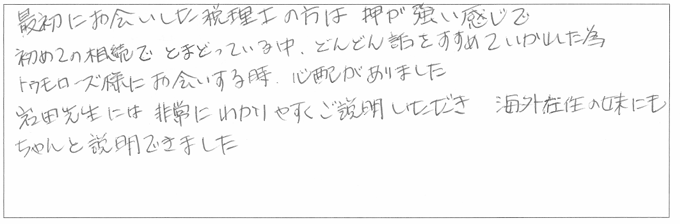 最初にお会いした税理士の方は 押が強い感じで
初めての相続で とまどっている中、どんどん話をすすめていかれた為
トゥモローズ様にお会いする時、心配がありました
岩田先生には 非常に わかりやすくご説明いただき 海外在住の妹にも
ちゃんと説明できました